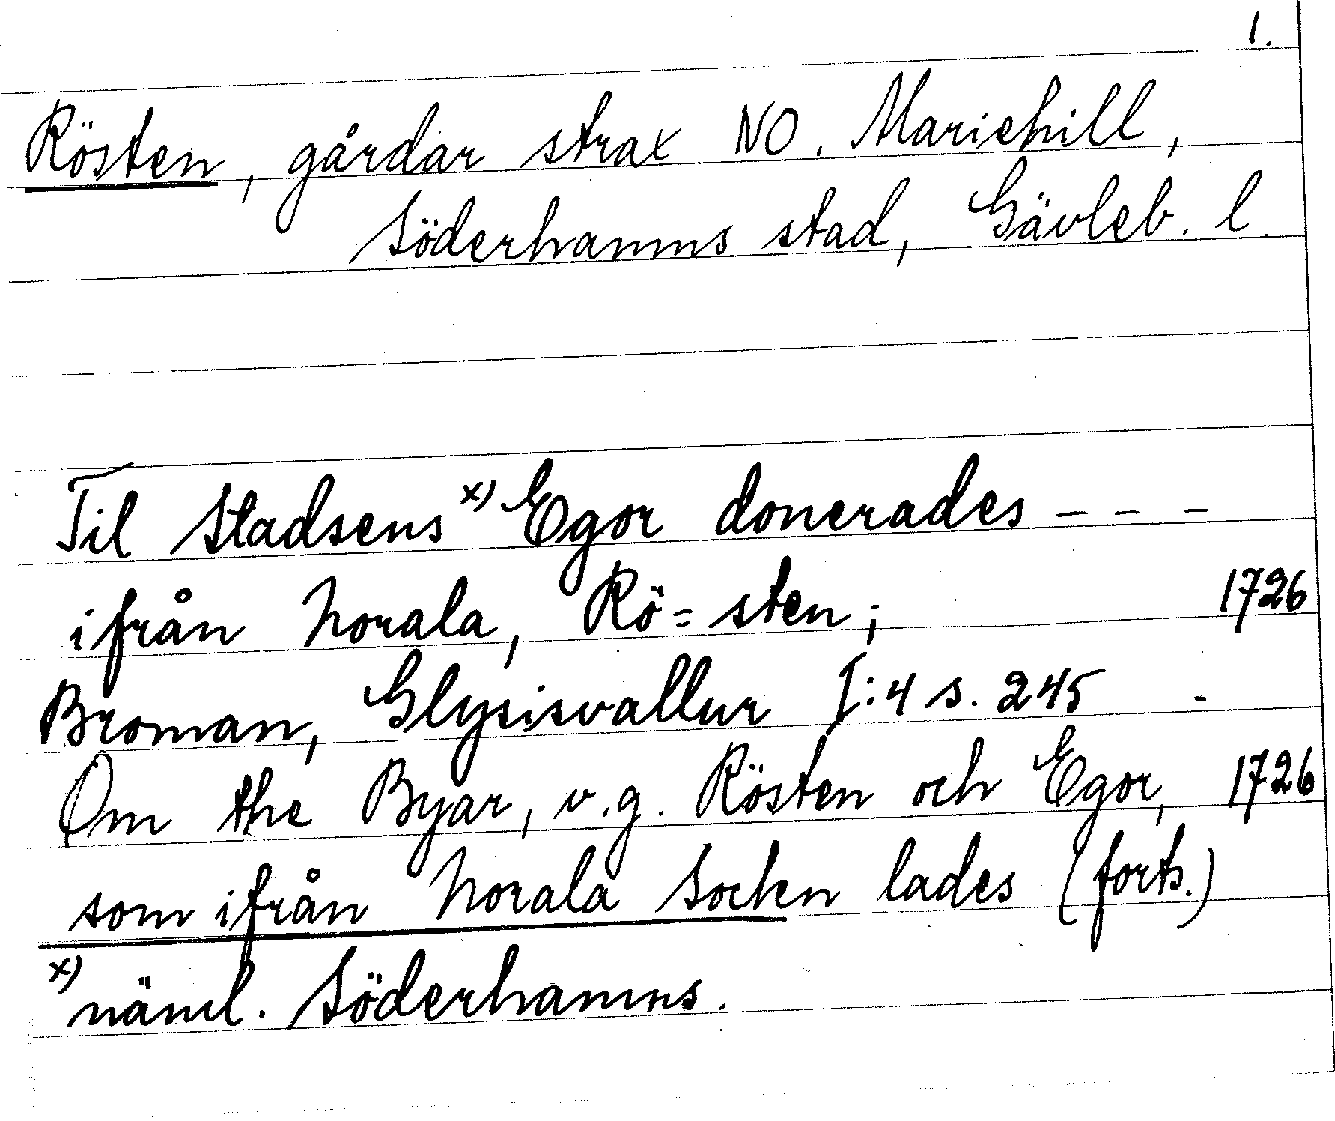 1.
Rösten, gårdar strax NO. Mariehill,
Söderhamns stad, Gävleb. l.
Til Stadsens x) Egor donerades - - -
ifrån Norala, Rö= sten; 1726
Broman, Glysisvallur I:4 s. 245 -
Om the Byar, v.g. Rösten och Egor, 1726
som ifrån Norala Sockn lades (forts.)
x) näml. Söderhamns.